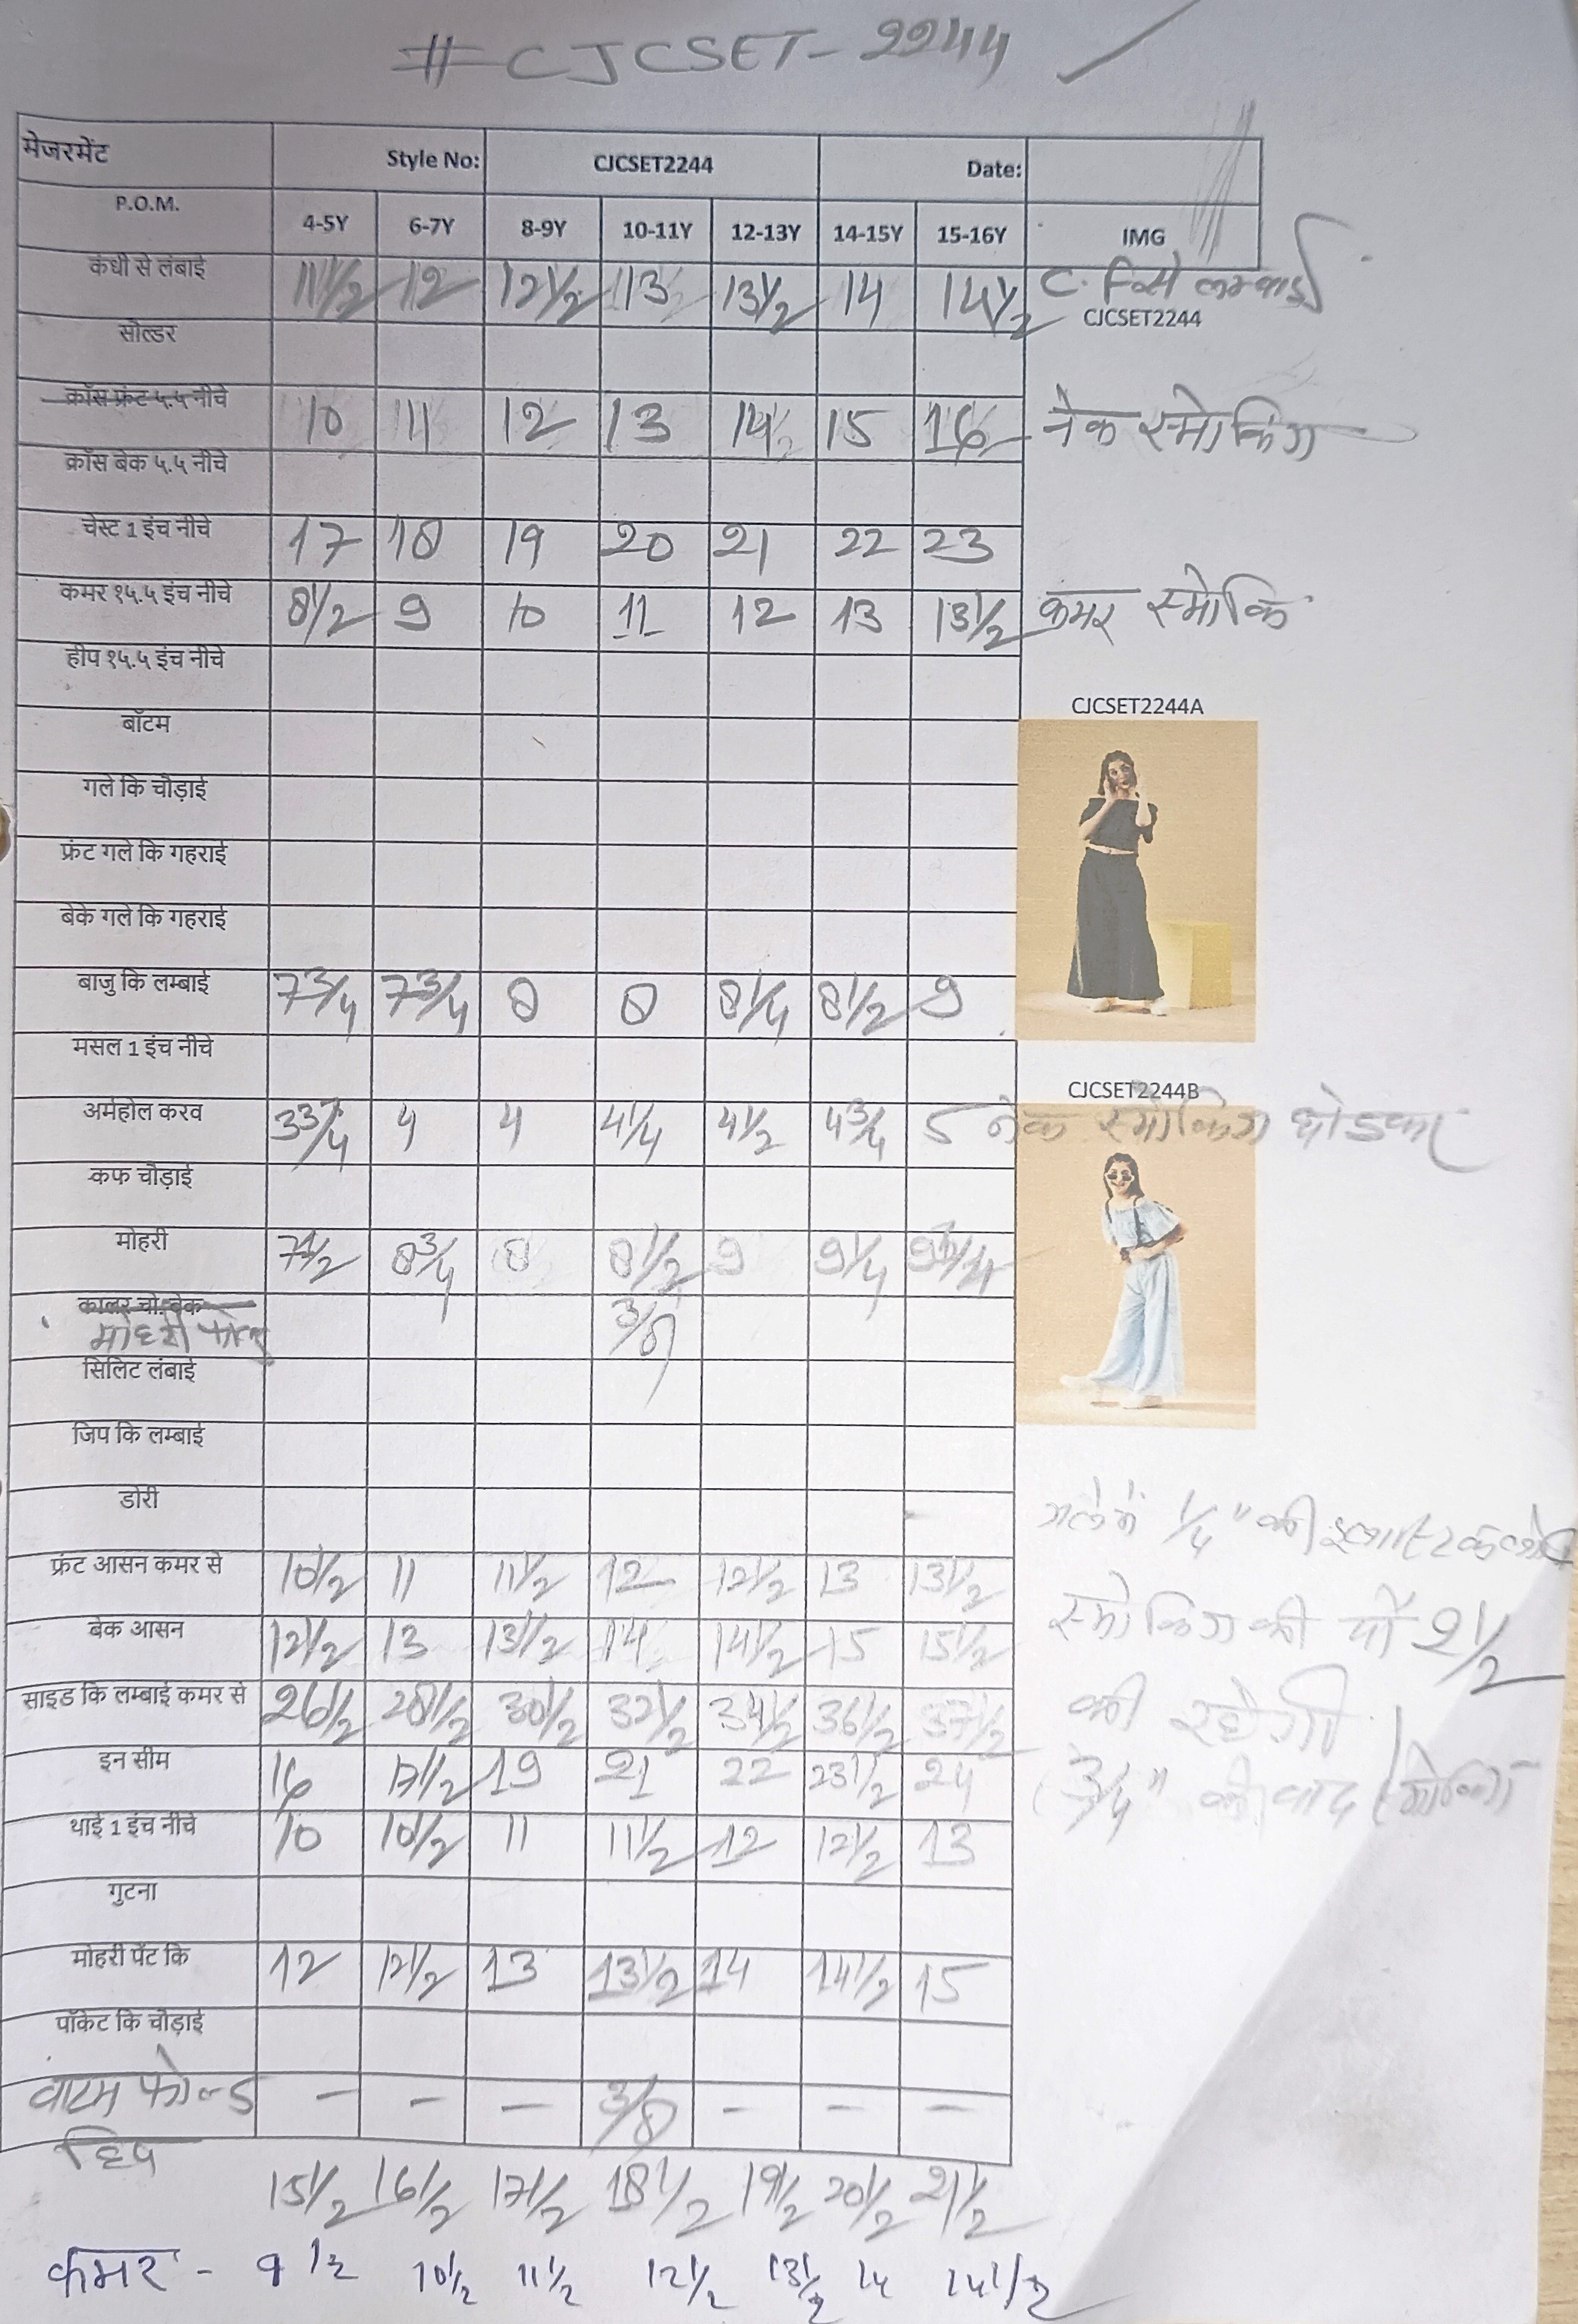 #CJCSET-2244
मेजरमेंट Style No: CJCSET2244 Date:
P.O.M. 4-5Y 6-7Y 8-9Y 10-11Y 12-13Y 14-15Y 15-16Y IMG
कंधी से लंबाई 11 1/2 12 12 1/2 13 13 1/2 14 14 1/2 C. लम्बाई
CJCSET2244
सोल्डर
क्रॉस फ्रंट ५.५ नीचे 10 11 12 13 14 15 16 नेक स्मोकिंग
क्रॉस बेक ५.५ नीचे
चेस्ट 1 इंच नीचे 17 18 19 20 21 22 23
कमर १५.५ इंच नीचे 8 1/2 9 10 11 12 13 13 1/2 कमर स्मोकि
हीप १५.५ इंच नीचे
CJCSET2244A
बॉटम
गले कि चौड़ाई
फ्रंट गले कि गहराई
बेके गले कि गहराई
बाजु कि लम्बाई 7 3/4 7 3/4 8 8 8 1/4 8 1/2 9
मसल 1 इंच नीचे
CJCSET2244B
अर्महोल करव 3 3/4 4 4 4 1/4 4 1/2 4 3/4 5 नेक स्मोकिंग छोडकर
कफ चौड़ाई
मोहरी 7 1/2 8 3/4 8 8 1/2 9 9 1/4
कालर चो. बेक
मोहरी 3/8
सिलिट लंबाई
जिप कि लम्बाई
डोरी
गले में 1/4" की
फ्रंट आसन कमर से 10 1/2 11 11 1/2 12 12 1/2 13 13 1/2
स्मोकिंग की चौ 2 1/2
बेक आसन 12 1/2 13 13 1/2 14 14 1/2 15 15 1/2
साइड कि लम्बाई कमर से 26 1/2 28 1/2 30 1/2 32 1/2 34 1/2 36 1/2 37 1/2 की रहेगी
इन सीम 16 17 1/2 19 21 22 23 1/2 24 3/4" के बाद स्मोकिंग
थाई 1 इंच नीचे 10 10 1/2 11 11 1/2 12 12 1/2 13
गुटना
मोहरी पेंट कि 12 12 1/2 13 13 1/2 14 14 1/2 15
पॉकेट कि चौड़ाई
वाटम फोल्ड - - - 3/8 - - -
हिप 15 1/2 16 1/2 17 1/2 18 1/2 19 1/2 20 1/2 21 1/2
कमर - 9 1/2 10 1/2 11 1/2 12 1/2 13 1/2 14 14 1/2